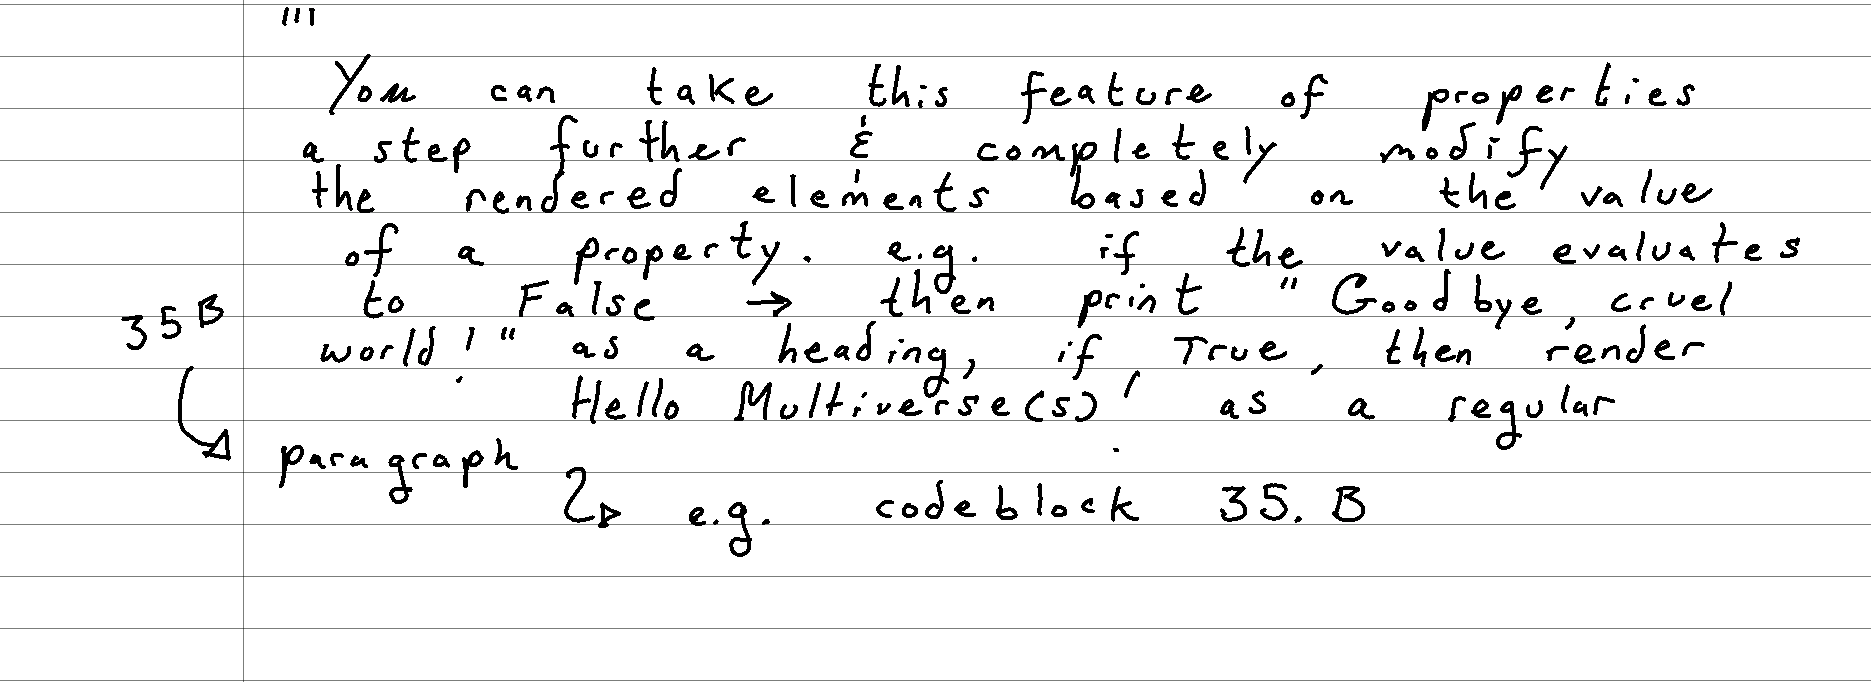 '''
You can take this feature of properties
a step further & completely modify
the rendered elements based on the value
of a property. e.g. if the value evaluates
to False → then print "Goodbye, cruel
35B
world!" as a heading, if, True, then render
Hello Multiverse(s)' as a regular
paragraph
e.g. codeblock 35. B